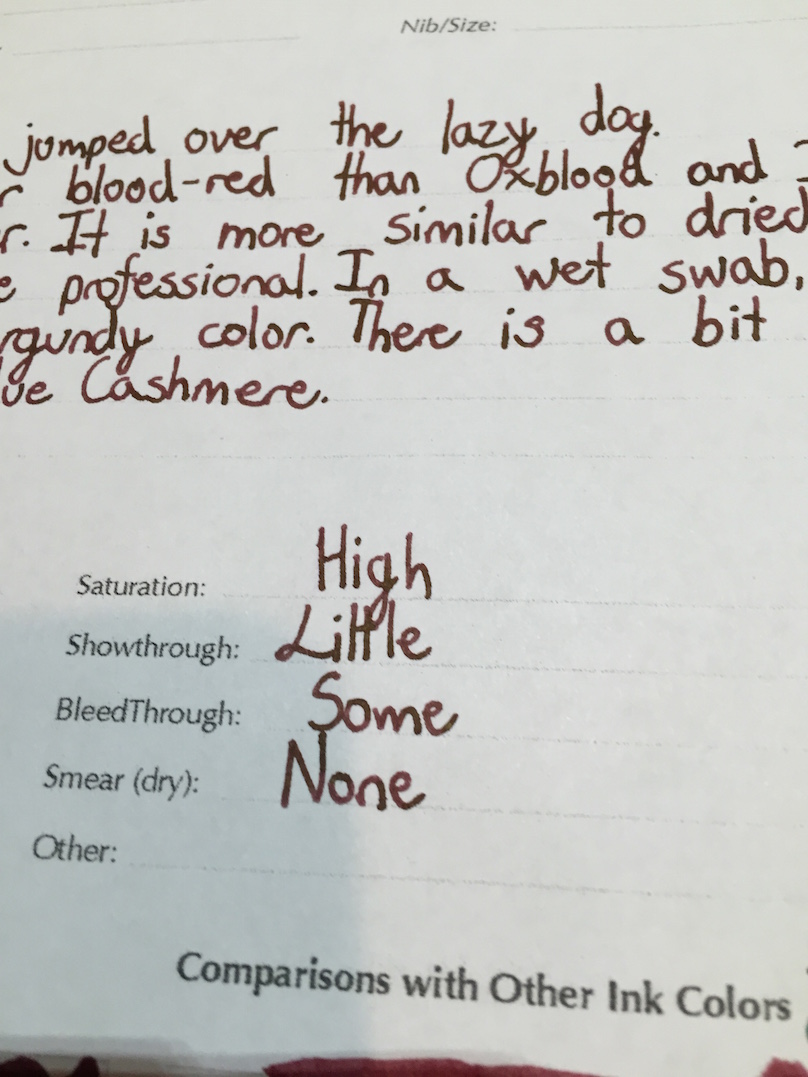 Nib/Size:
jumped over the lazy dog.
r blood-red than Oxblood and I
r. It is more similar to dried
e professional. In a wet swab,
rgundy color. There is a bit
ue Cashmere.
Saturation: High
Showthrough: Little
BleedThrough: Some
Smear (dry): None
Other:
Comparisons with Other Ink Colors